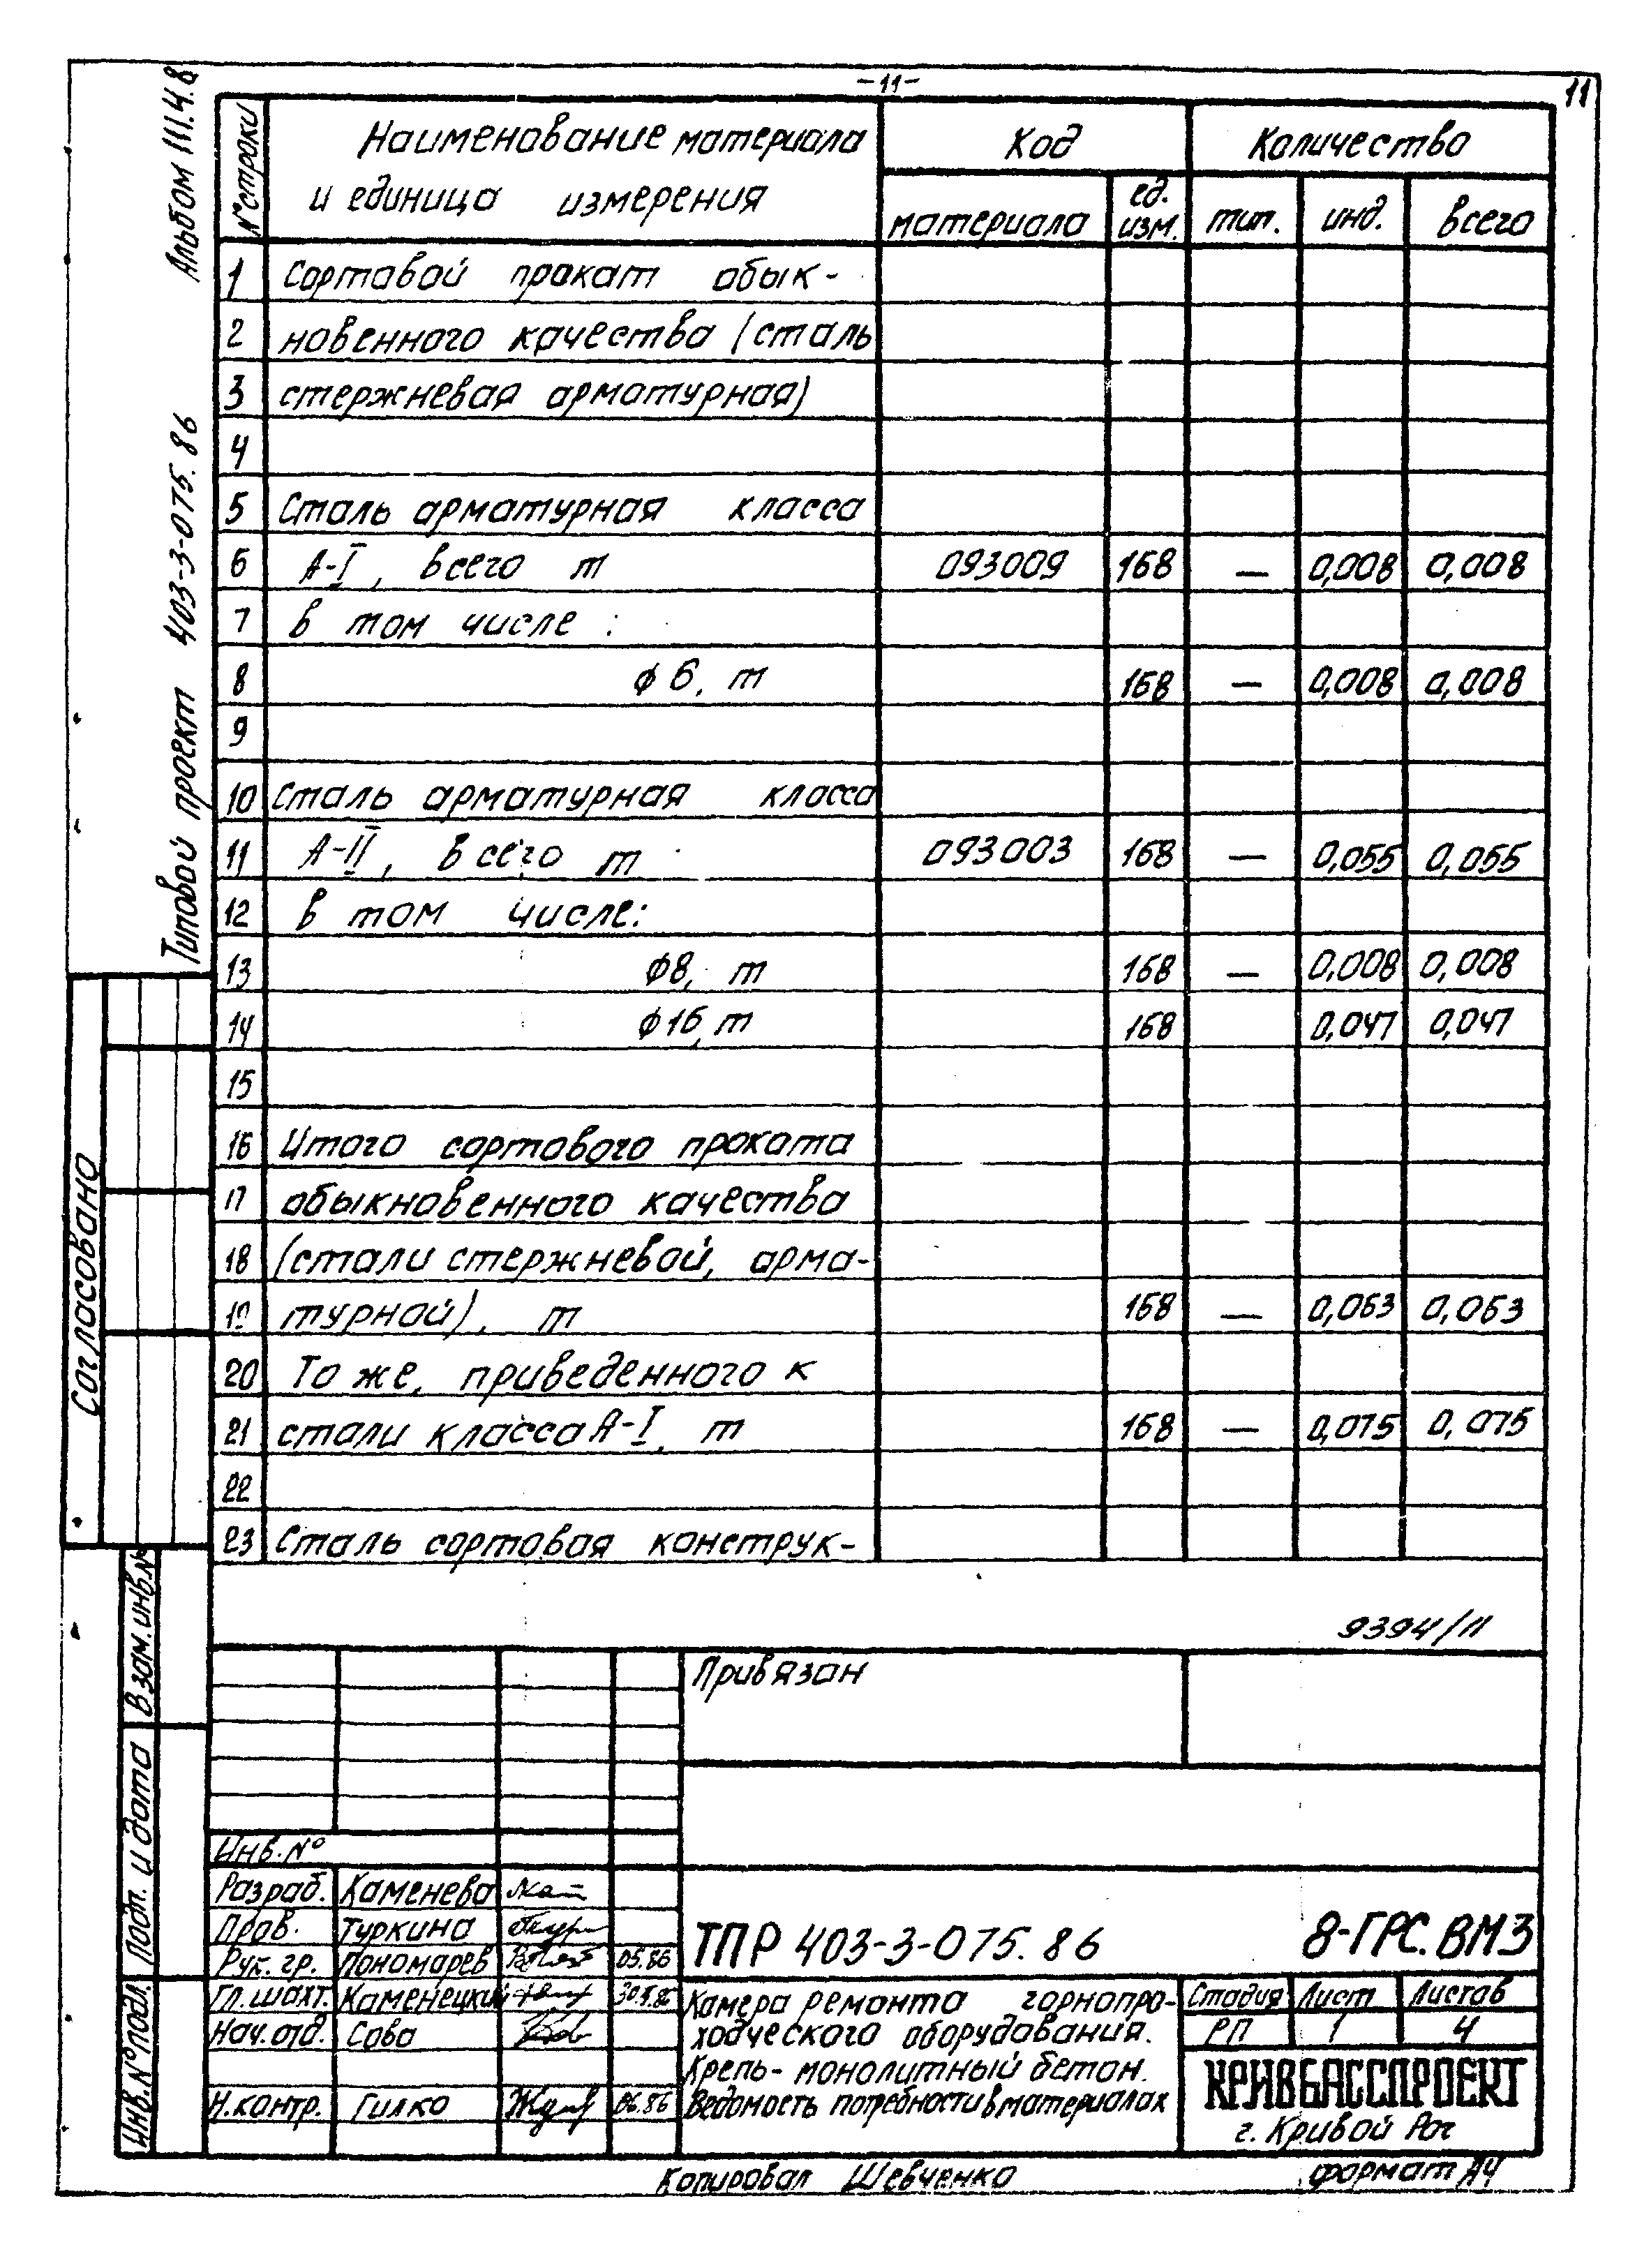 -11-
11
Альбом III.4.8
Типовой проект 403-3-075.86
№ строки
Наименование материала
и единица измерения
Код
Количество
материала
ед. изм.
тип.
инд.
всего
1 Сортовой прокат обык-
2 новенного качества (сталь
3 стержневая арматурная)
4
5 Сталь арматурная класса
6 А-I, всего т 093009 168 — 0,008 0,008
7 в том числе :
8 ф 6, т 168 — 0,008 0,008
9
10 Сталь арматурная класса
11 А-II, всего т 093003 168 — 0,055 0,055
12 в том числе:
13 ф8, т 168 — 0,008 0,008
14 ф16, т 168 0,047 0,047
15
16 Итого сортового проката
17 обыкновенного качества
18 (стали стержневой, арма-
19 турной), т 168 — 0,063 0,063
20 То же, приведенного к
21 стали класса А-I, т 168 — 0,075 0,075
22
23 Сталь сортовая конструк-
9394/11
Согласовано
Взам. инв.№
Подп. и дата
Инв.№ подл.
Привязан
Инв.№
Разраб. Каменева
Пров. Туркина
Рук. гр. Пономарев 05.86
Гл.шахт. Каменецкий
Нач.отд. Сова
Н.контр. Гилко 06.86
ТПР 403-3-075.86 8-ГРС.ВМЗ
Камера ремонта горнопро-
ходческого оборудования.
Крепь- монолитный бетон.
Ведомость потребности в материалах
Стадия Лист Листов
РП 1 4
КРИВБАССПРОЕКТ
г. Кривой Рог
Копировал Шевченко
формат А4